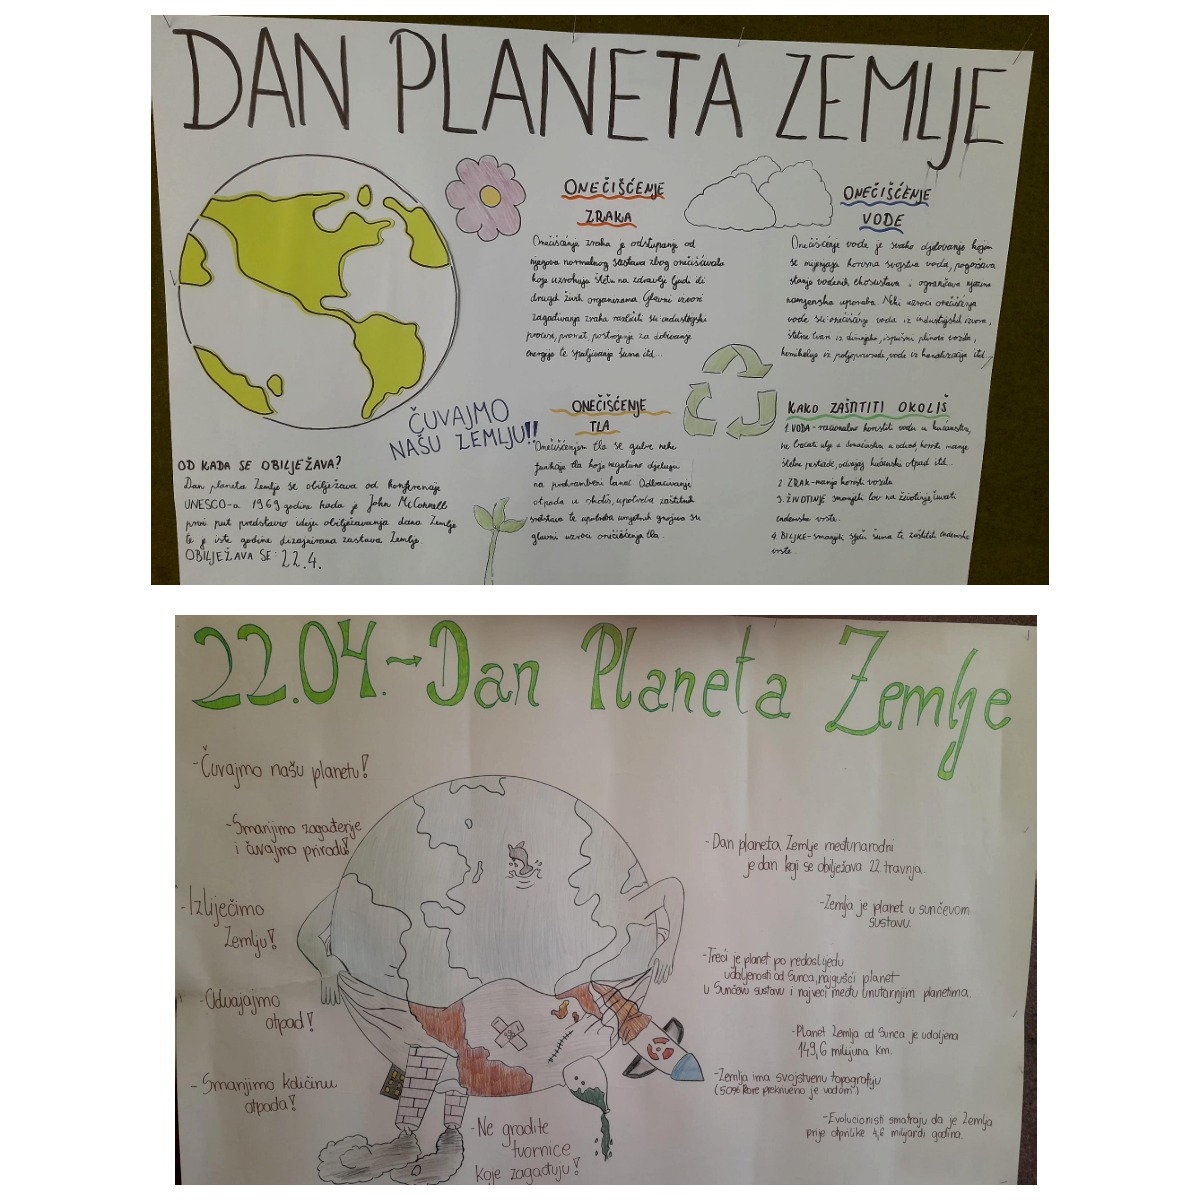 DAN PLANETA ZEMLJE
ONEČIŠĆENJE
ZRAKA
Onečišćenje zraka je odstupanje od
njegova normalnog sastava zbog onečišćavala
koja uzrokuju štetu na zdravlje ljudi ili
drugih živih organizama. Glavni izvori
zagađivanja zraka različiti su: industrijski
procesi, promet, postrojenja za dobivanje
energije te spaljivanje šuma itd...
ONEČIŠĆENJE
VODE
Onečišćenje vode je svako djelovanje kojim
se mijenjaju korisna svojstva voda, pogoršava
stanje vodenih ekosustava i ograničava njezina
namjenska uporaba. Neki uzroci onečišćenja
vode su: onečišćenje voda iz industrijskih izvora,
štetne tvari iz dimnjaka, ispušni plinovi vozila,
kemikalije iz poljoprivrede, vode iz kanalizacija itd.
ČUVAJMO
NAŠU ZEMLJU!!
OD KADA SE OBILJEŽAVA?
Dan planeta Zemlje se obilježava od konferencije
UNESCO-a 1969 godine kada je John McConnell
prvi put predstavio ideju obilježavanja dana Zemlje
te je iste godine dizajnirana zastava Zemlje.
OBILJEŽAVA SE: 22.4.
ONEČIŠĆENJE
TLA
Onečišćenjem tla se gube neke
funkcije tla koje negativno djeluju
na prehrambeni lanac. Odbacivanje
otpada u okoliš, upotreba zaštitnih
sredstava te upotreba umjetnih gnojiva su
glavni uzroci onečišćenja tla.
KAKO ZAŠTITITI OKOLIŠ
1. VODA - racionalno koristiti vodu u kućanstvu,
ne bacati ulje u odvod, koristi manje
štetne pesticide, odvajaj kućanski otpad itd...
2. ZRAK - manje koristi vozila
3. ŽIVOTINJE smanjiti lov na životinje, čuvati
endemske vrste.
4. BILJKE - smanjiti sječu šuma te zaštititi endemske
vrste
22.04. → Dan Planeta Zemlje
- Čuvajmo našu planetu!
- Smanjimo zagađenje
i čuvajmo prirodu!
- Izliječimo
Zemlju!
- Odvajajmo
otpad!
- Smanjimo količinu
otpada!
- Ne gradite
tvornice
koje zagađuju!
- Dan planeta Zemlje međunarodni
je dan koji se obilježava 22. travnja.
- Zemlja je planet u sunčevom
sustavu.
- Treći je planet po redoslijedu
udaljenosti od Sunca, najgušći planet
u Sunčevu sustavu i najveći među unutarnjim planetima.
- Planet Zemlja od Sunca je udaljena
149,6 milijuna km.
- Zemlja ima svojstvenu topografiju
prekriveno je vodom)
- Evolucionisti smatraju da je Zemlja
prije otprilike 4,6 milijardi godina.